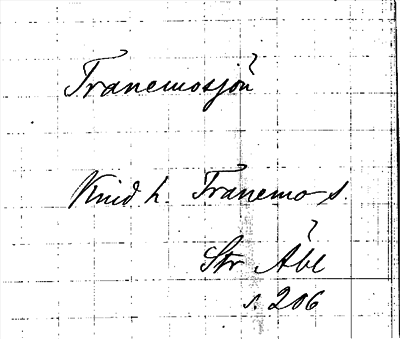 Tranemosjön
Kind h. Tranemo s.
Str Åbl
s. 206